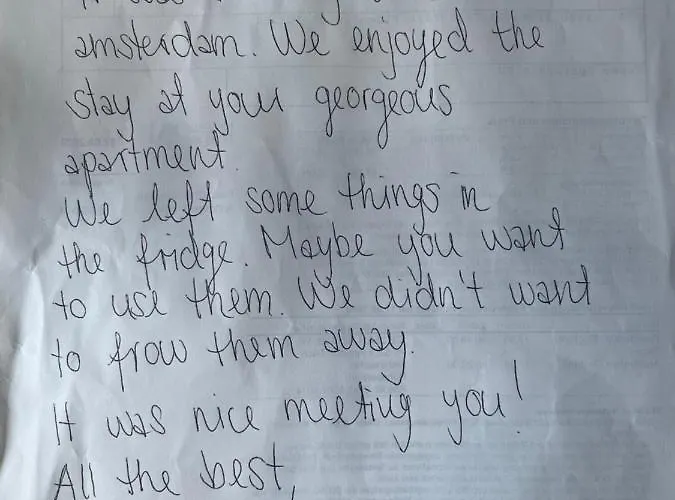 amsterdam. We enjoyed the
stay at your georgeous
apartment.
We left some things in
the fridge. Maybe you want
to use them. We didn't want
to frow them away.
It was nice meeting you!
All the best,